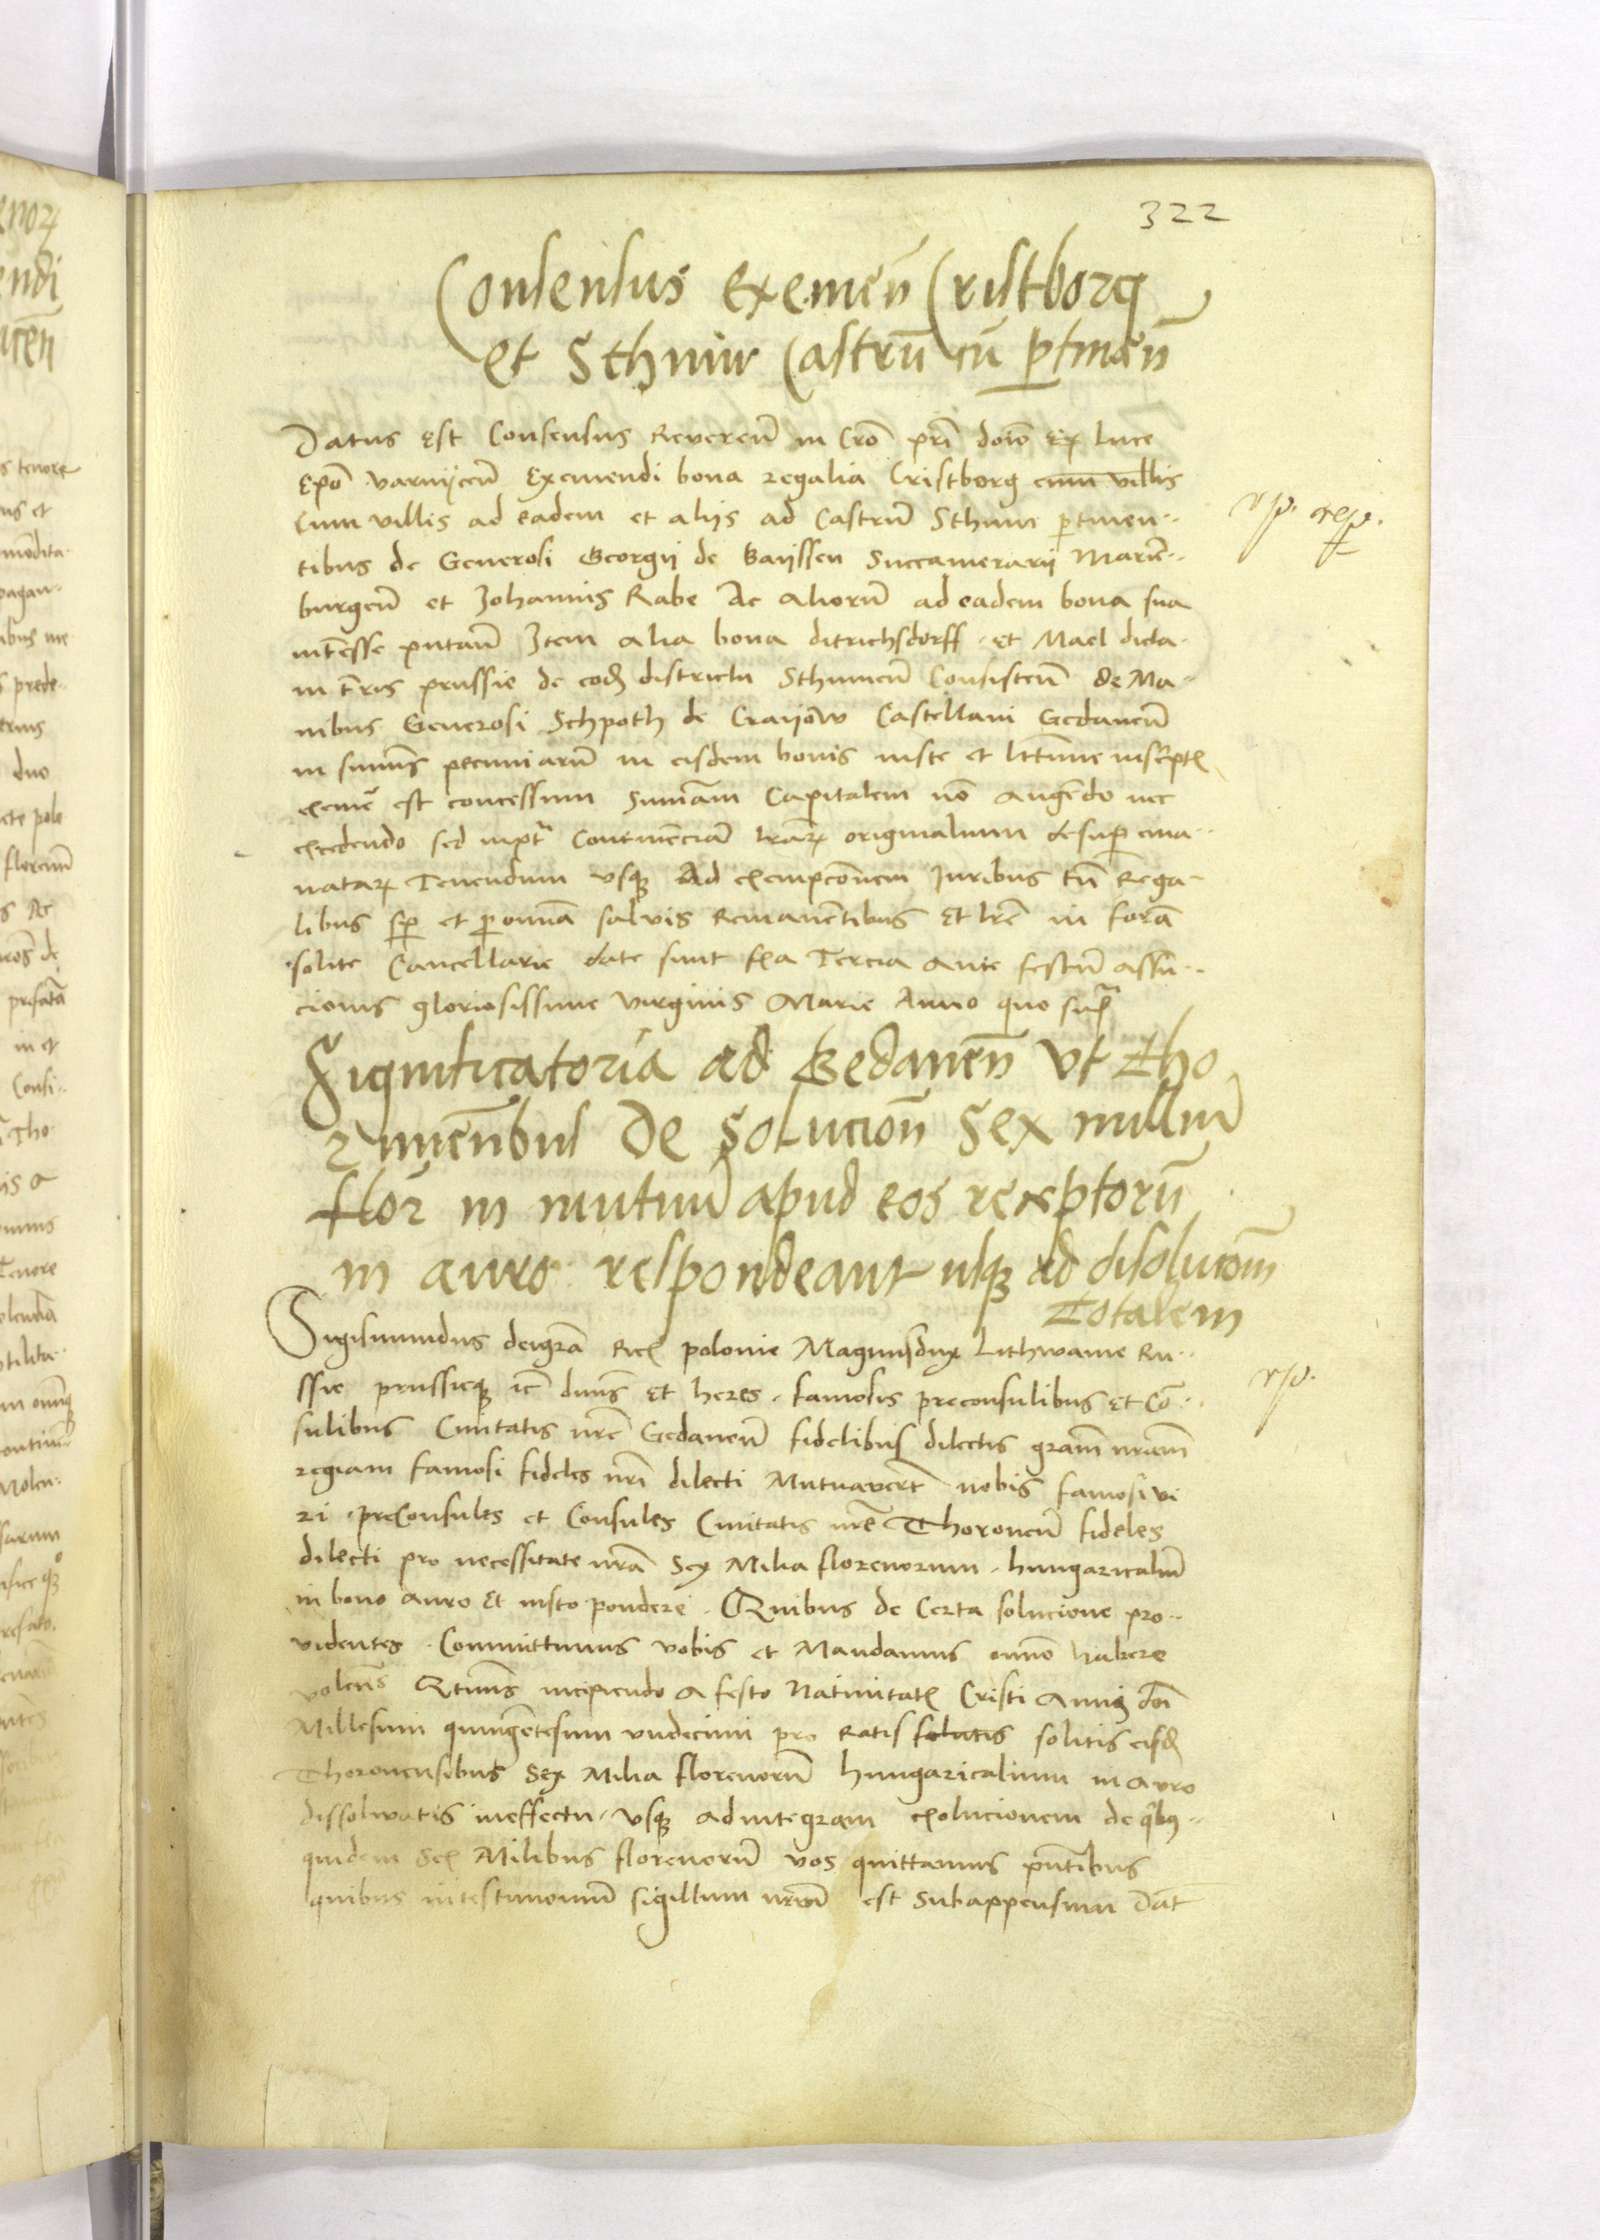 322
Consensus Exemen̄ Cristborg
et Sthum Castrū cū ptinen̄
Datus est Consensus Reveren̄ in Cr̄o pr̄i dn̄o Luce
Ep̄o varmijen̄ Exemendi bona regalia Cristborg cum villis
Cum villis ad eadem et alijs ad Castrū Sthum ptinen‑
tibus de Generosi Georgij de Baijssen Succamerarij Marie‑
burgen̄ et Johannis Rabe Ac aliorū ad eadem bona sua
intēsse putan̄ Item alia bona ditrichsdorff et Mael dicta
in tr̄is prussie de eod districtu Sthumen̄ Consisten̄ de Ma‑
nibus Generosi Schpoth de Craijow Castellani Gedanen̄
in sum̄is pecuniarū in eisdem bonis iuste et lttime inscript
exeme est concessum Sumam̄ Capitalem nō augēdo nec
excedendo sed iuxta Continēciam lrār originalium desup ema‑
natar Tenendum vsq Ad exempcōnem Iuribus tn̄ Rega‑
libus sp et p omnia salvis Remanētibus Et lrē in formā
solite Cancellarie date sunt fia Tercia ante festū assū‑
cionis gloriosissime virginis Marie Anno quo supra
Significatoria ad Gedanen̄ vt Tho
runen̄bus De Solucion̄ Sex milliū
flor in mutuū apud eos receptorū
in auro respondeant usq ad disolucōm
Totalem
Sigismundus dei grā Rex polonie Magnus dux Lithwanie Ru‑
ssie prussieq ic̄ dn̄us Et heres famosis preconsulibus Et Cō‑
sulibus Civitatis nr̄e Gedanen̄ fidelibus dilectis grām nr̄am
regiam famosi fideles nr̄i dilecti Mutuavert̄ nobis famosi vi
ri preConsules et Consules Civitatis nr̄e Thoronen̄ fideles
dilecti pro necessitate nr̄a Sex Milia florenorum hungaricaliū
in bono auro Et iusto pondere Quibus de Certa solucione pro‑
videntes Committimus vobis et Mandamus om̄no habere
volen̄s Qtin̄s incipiendo a festo Nativitat Cristi Anni dn̄i
Millesimi quingētesimi vndecimi pro Ratis solutis solitis eisd
Thoronensibus Sex Milia florenorū hungaricalium in auro
dissolvatis in effectu vsq ad integram exolucionem de qibus‑
quidem Sex Milibus florenorū vos quittamus pn̄tibus
quibus in testimoniū sigillum nr̄um est Subappensum Dat̄